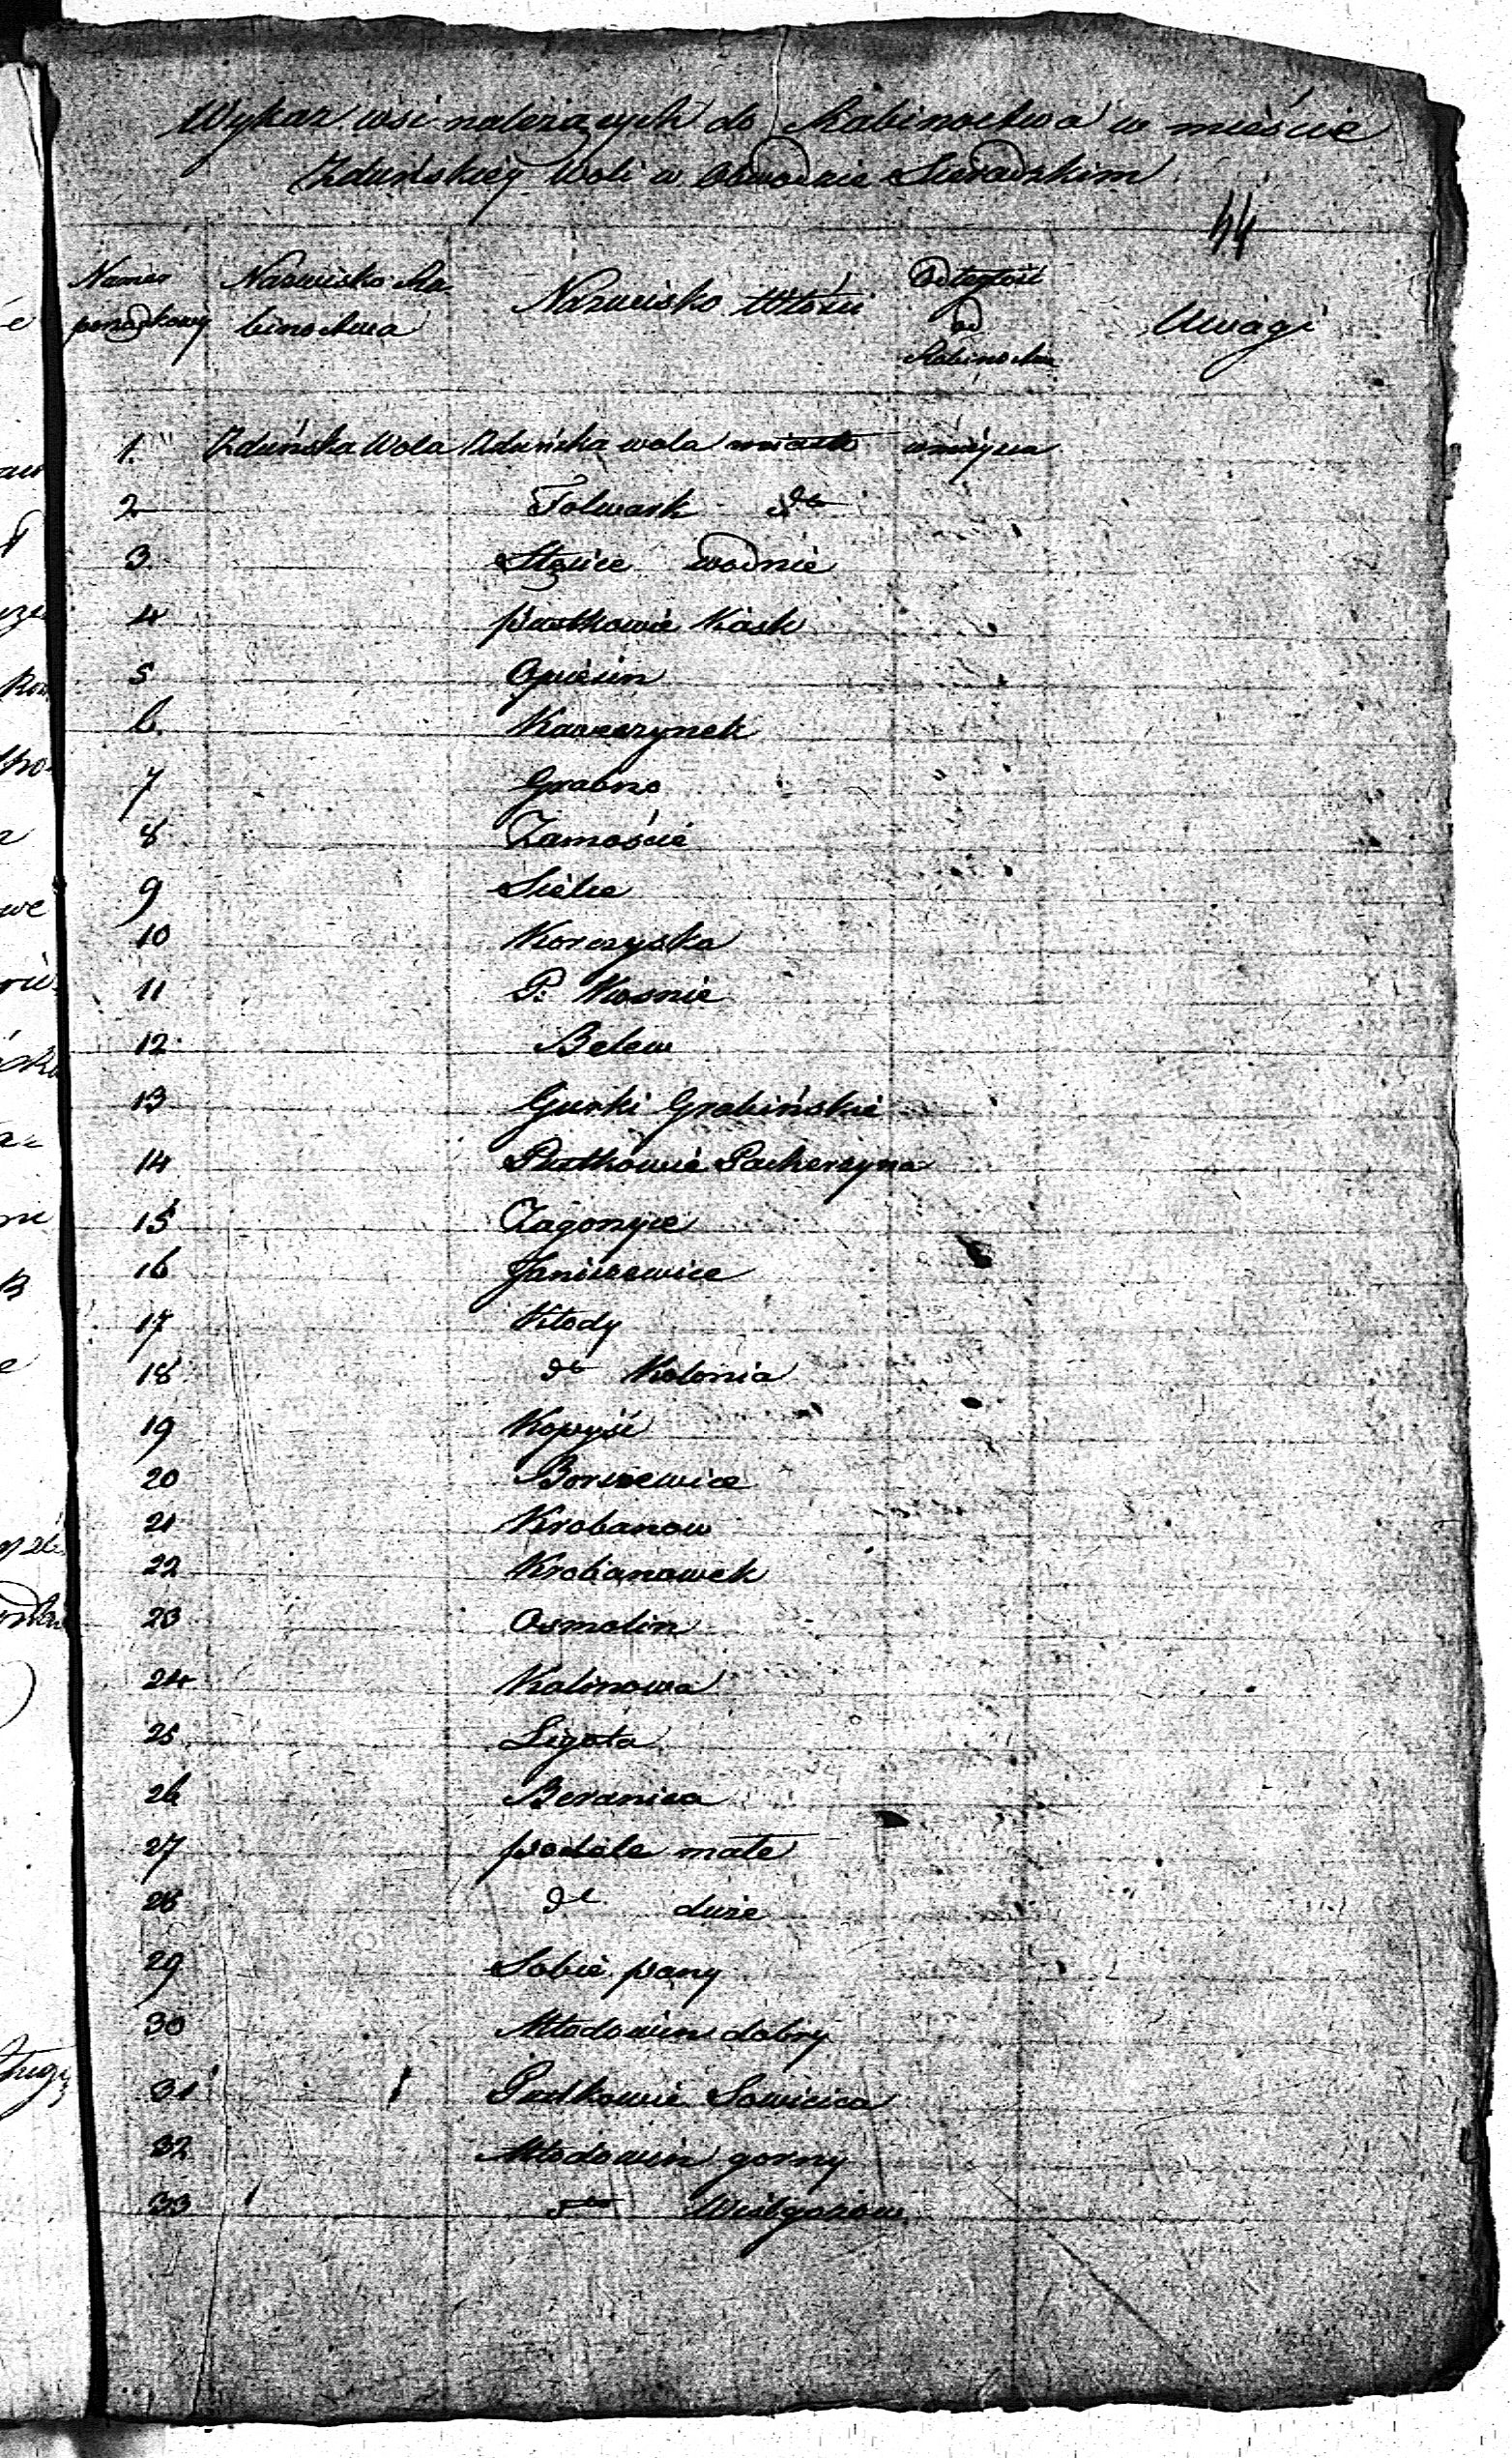 Wykaz wsi należących do Rabinostwa w mieście
Zduńskiey Woli w Obwodzie Sieradzkim
44
Numer porządkowy
Nazwisko Rabinostwa
Nazwisko Włości
Odległość od Rabinostwa
Uwagi
1. Zduńska Wola Zduńska wola miasto wmiejscu
2 Folwark dto
3 Stęszice wodnie
4 pustkowie Kask
5 Opiesin
6. Karczynek
7 Grabno
8 Zamoście
9 Sielce
10 Korczyska
11 P: Wosnie
12 Belew
13 Gurki Grabińskie
14 Pustkowie Pacherzyna
15 Zagorzyce
16 Janiszewice
17 Kłody
18 dto Kolonia
19 Kopyść
20 Borszewice
21 Krobanow
22 Krobanowek
23 Osmolin
24 Kalinowa
25 Ligota
26 Beranica
27 podole małe
28 dto duże
29 Sobie pany
30 Młodowin dolny
31 Pustkowie Sowizica
32 Młodowin gorny
33 dto